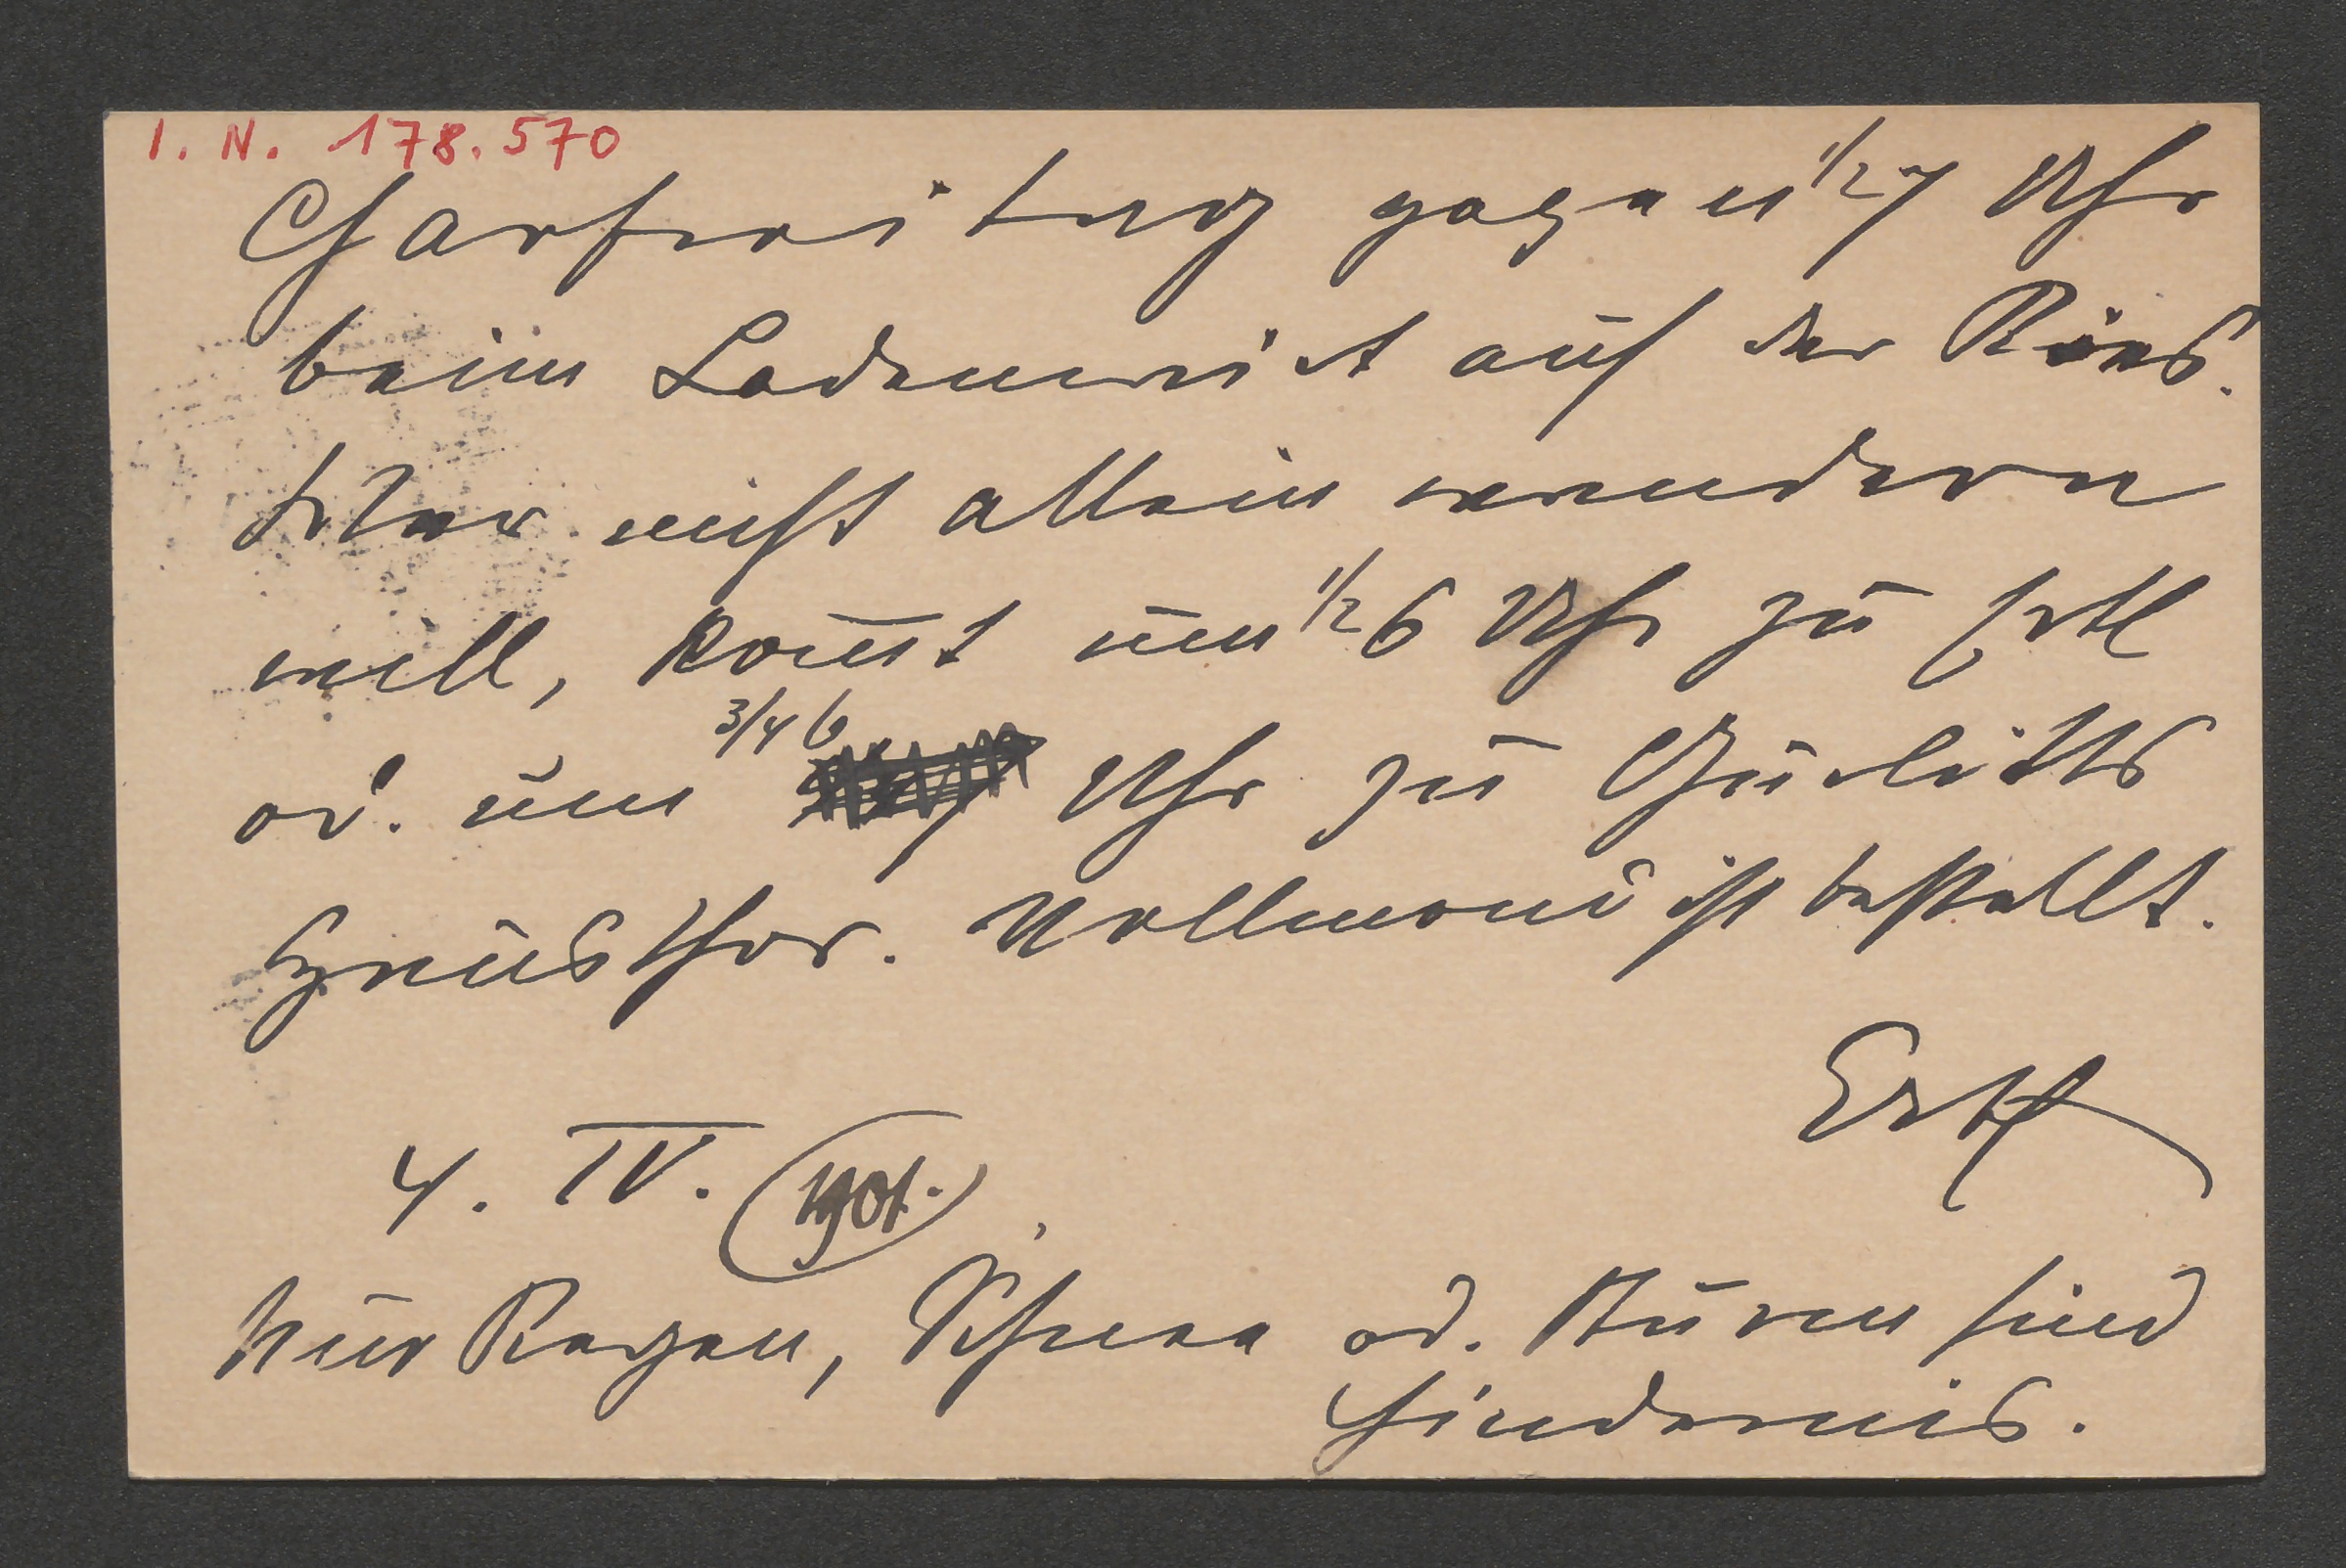 I. N. 178.570
Charfreitag gegen 1/27 Uhr
beim Ladenwirt auf der Ries.
Wer nicht allein wandern
will, kom̅t um 1/26 Uhr zu Ertl
od. um 3/4 6 Uhr zu Gurlitts
Haustor. Vollmond ist bestellt.
Ertl
4. IV. (1901.)
Nur Regen, Schnee od. Sturm sind
Hindernis.